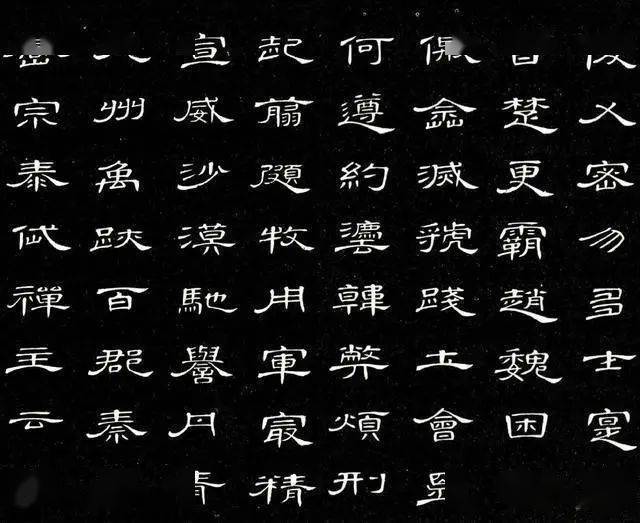 乂密勿多士寔
楚更霸趙魏困
滅虢踐土會
何遵約灋韓弊煩刑
起翦頗牧用軍最精
宣威沙漠馳譽丹青
州禹跡百郡秦
宗泰岱禪主云